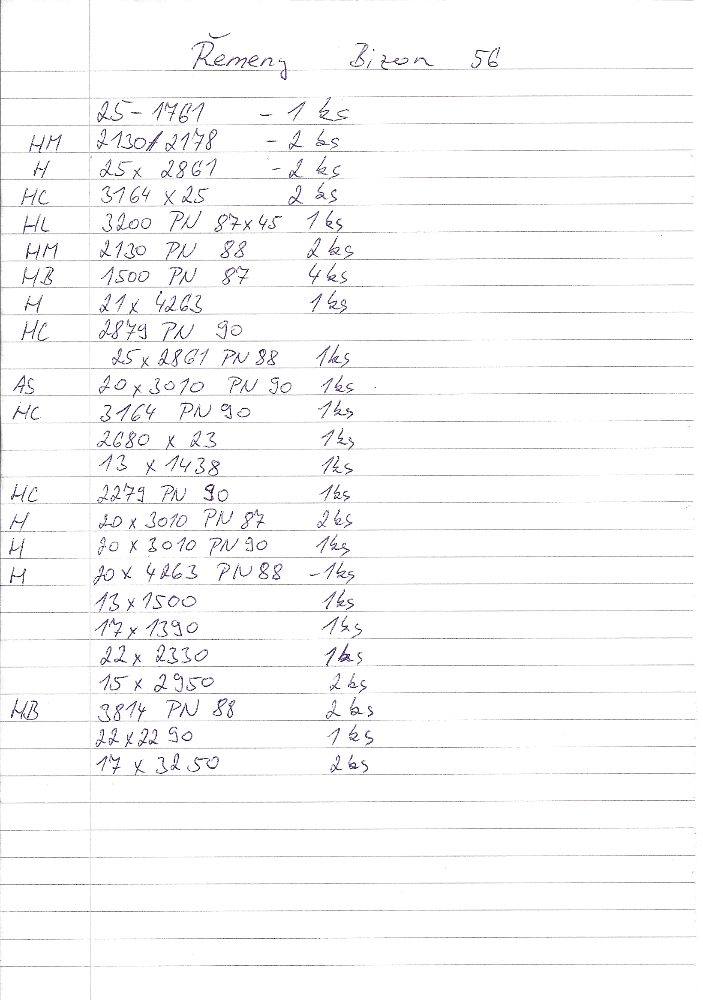 Řemeny Bizon 56
25-1761 - 1 ks
HM 2130/2178 - 2 ks
H 25x 2861 - 2 ks
HC 3164 x 25 2 ks
HL 3200 PN 87x45 1 ks
HM 2130 PN 88 2 ks
HB 1500 PN 87 4 ks
H 21x 4263 1 ks
HC 2879 PN 90
25x2861 PN 88 1 ks
AS 20x3010 PN 90 1 ks
HC 3164 PN 90 1 ks
2680 x 23 1 ks
13 x 1438 1 ks
HC 2279 PN 90 1 ks
H 20x3010 PN 87 2 ks
H 20x3010 PN 90 1 ks
H 20x 4263 PN 88 - 1 ks
13x1500 1 ks
17x1390 1 ks
22x 2330 1 ks
15x2950 2 ks
HB 3814 PN 88 2 ks
22x2290 1 ks
17x 3250 2 ks